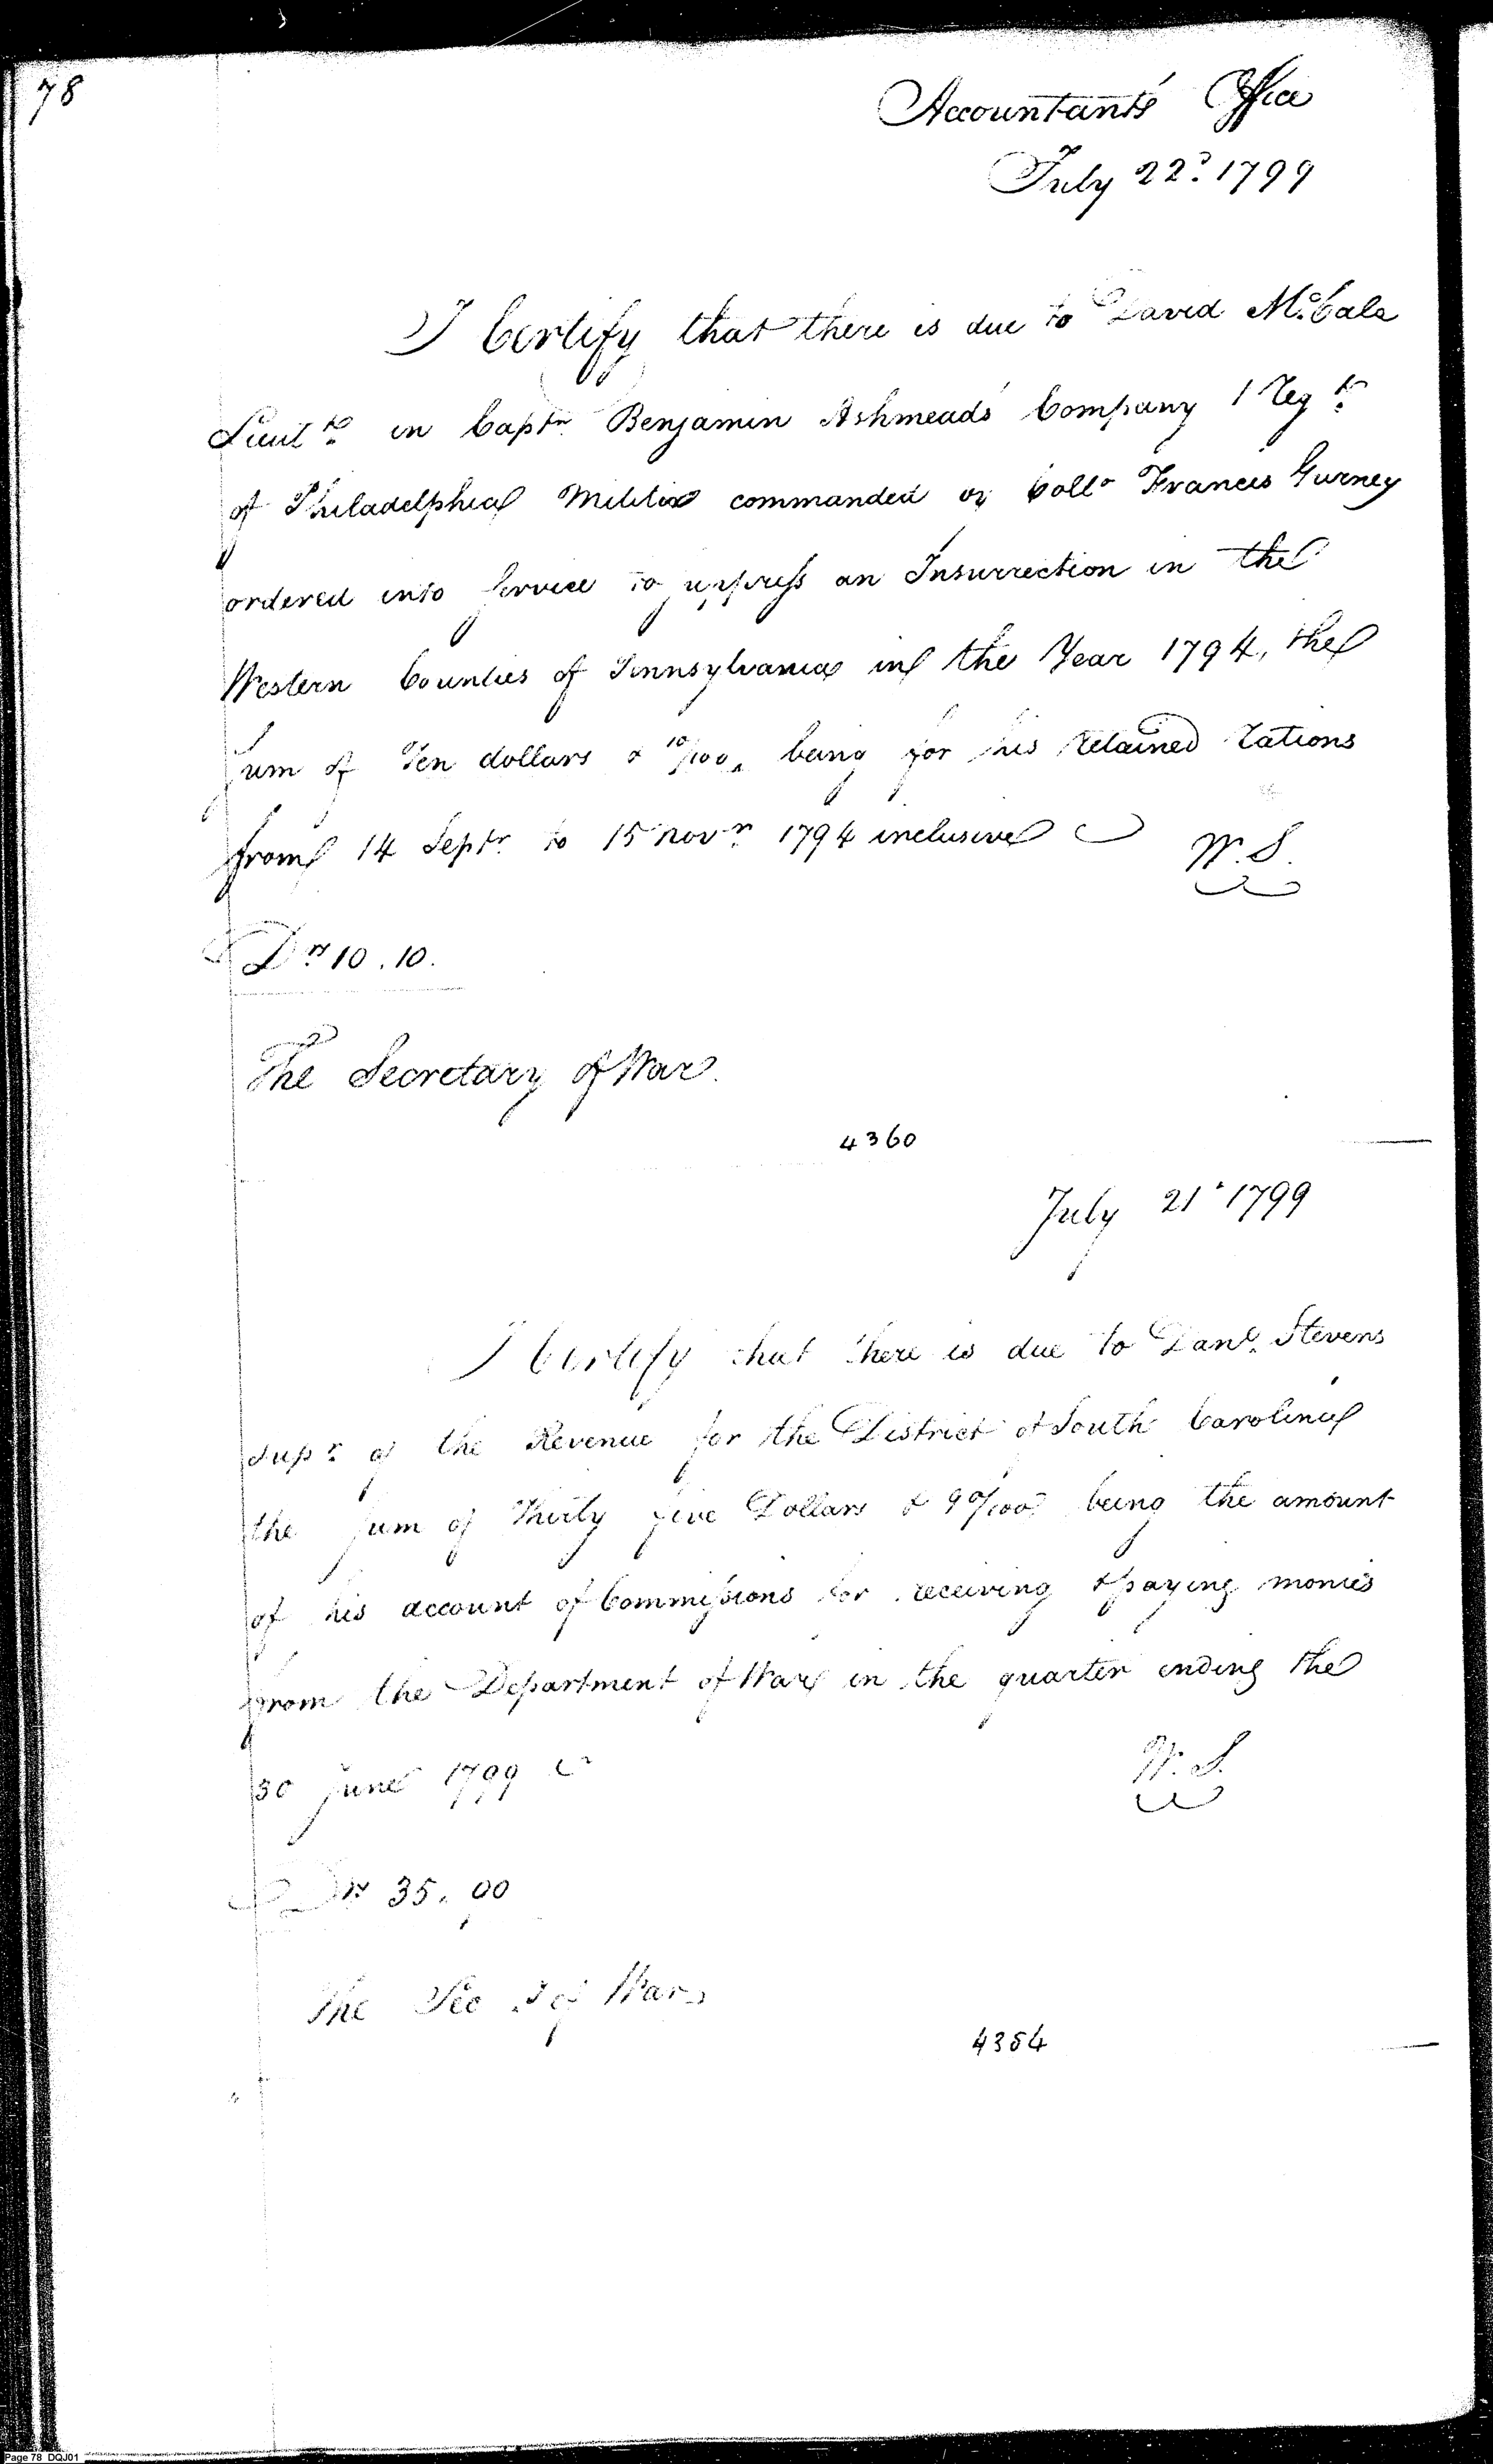 78
Accountant's Office
July 22d. 1799
I Certify that there is due to David McCala
Lieut. in Captn. Benjamin Ashmeads Company 1 Regt.
of Philadelphia Militia commanded by Collo. Francis Gurney
ordered into Service to suppress an Insurrection in the
Western Counties of Pennsylvania in the Year 1794, the
Sum of Ten dollars & 10/100, being for his retained rations
from 14 Septr. to 15 Novr. 1794 inclusive
W. S.
Drs. 10.10.
The Secretary of War.
4360
July 21. 1799
I Certify that there is due to Danl. Stevens
Supr. of the Revenue for the District of South Carolina
the Sum of Thirty five Dollars & 90/100 being the amount
of his account of Commissions for receiving & paying monies
from the Department of War in the quarter ending the
30 June 1799
W. S.
Drs. 35.90
The Secy. of War
4354
Page 78 DQJ01